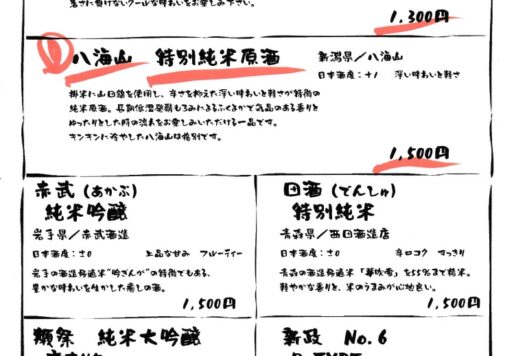 暑さに負けないクールな味わいをお楽しみ下さい。
1,300円
八海山 特別純米原酒
新潟県／八海山
日本酒度：+1 深い味わいと軽さ
掛米に山田錦を使用し、辛さを抑えた深い味わいと軽さが特徴の
純米原酒。長期低温発酵もろみによるふくよかで気品のある香りと
ゆったりとした時の流れをお楽しみいただける一品です。
キンキンに冷やした八海山は格別です。
1,500円
赤武（あかぶ）
純米吟醸
岩手県／赤武酒造
日本酒度：±0 上品な甘み フルーティー
岩手の酒造好適米“吟ぎんが”の特徴でもある、
豊かな味わいを生かした癒しの酒。
1,500円
田酒（でんしゅ）
特別純米
青森県／西田酒造店
日本酒度：±0 辛口コク すっきり
青森の酒造好適米「華吹雪」を55%まで精米。
軽やかな香りと、米のうまみが心地良い。
1,500円
純米大吟醸
新政 No.6